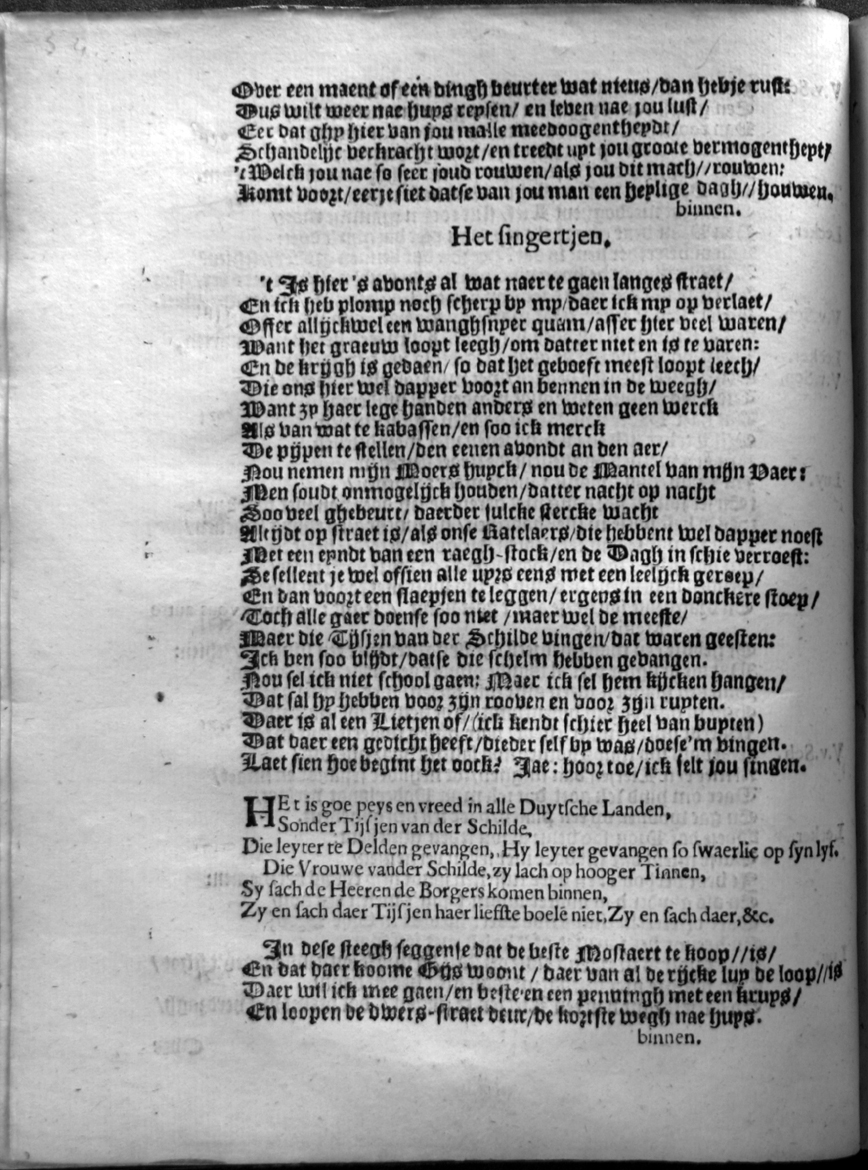 Over een maent of een dingh beurter wat nieus/dan hebje rust:
Dus wilt weer nae huys reysen/ en leven nae jou lust/
Eer dat ghy hier van jou malle meedoogentheydt/
Schandelijc verkracht wort/en treedt uyt jou groote vermogentheyt/
't Welck jou nae so seer soud rouwen/als jou dit mach//rouwen:
Komt voort/eerje siet datse van jou man een heylige dagh//houwen.
binnen.
Het singertjen.
't Is hier 's avonts al wat naer te gaen langes straet/
En ick heb plomp noch scherp by my/daer ick my op verlaet/
Offer allijckwel een wanghsnyer quam/asser hier veel waren/
Want het graeuw loopt leegh/om datter niet en is te varen:
En de krijgh is gedaen/ so dat het geboeft meest loopt leech/
Die ons hier wel dapper voort an bennen in de weegh/
Want zy haer lege handen anders en weten geen werck
Als van wat te kabassen/en soo ick merck
De pijpen te stellen/den eenen avondt an den aer/
Nou nemen mijn Moers huyck/ nou de Mantel van mijn Vaer:
Men soudt onmogelijck houden/datter nacht op nacht
Soo veel ghebeurt/ daerder sulcke stercke wacht
Altijdt op straet is/als onse Ratelaers/die hebbent wel dapper noest
Met een eyndt van een raegh-stock/en de Dagh in schie verroest:
Se sellent je wel offien alle uyrs eens met een leelijck geroep/
En dan voort een slaepjen te leggen/ ergens in een donckere stoep/
Toch alle gaer doense soo niet /maer wel de meeste/
Maer die Tijsjen van der Schilde vingen/dat waren geesten:
Ick ben soo blijdt/datse die schelm hebben gevangen.
Nou sel ick niet school gaen: Maer ick sel hem kijcken hangen/
Dat sal hy hebben voor zijn rooven en voor zijn ruyten.
Daer is al een Lietjen of/(ick kendt schier heel van buyten)
Dat daer een gedicht heeft/dieder self by was/doese'm vingen.
Laet sien hoe begint het oock? Jae: hoor toe/ick selt jou singen.
HEt is goe peys en vreed in alle Duytsche Landen,
Sonder Tijsjen van der Schilde,
Die leyter te Delden gevangen,, Hy leyter gevangen so swaerlic op syn lyf.
Die Vrouwe vander Schilde, zy lach op hooger Tinnen,
Sy sach de Heeren de Borgers komen binnen,
Zy en sach daer Tijsjen haer liefste boelé niet, Zy en sach daer, &c.
In dese steegh seggense dat de beste Mostaert te koop//is/
En dat daer koome Gijs woont / daer van al de rijcke luy de loop//is
Daer wil ick mee gaen/en besteen een penningh met een kruys/
En loopen de dwers-straet deur/de kortste wegh nae huys.
binnen.